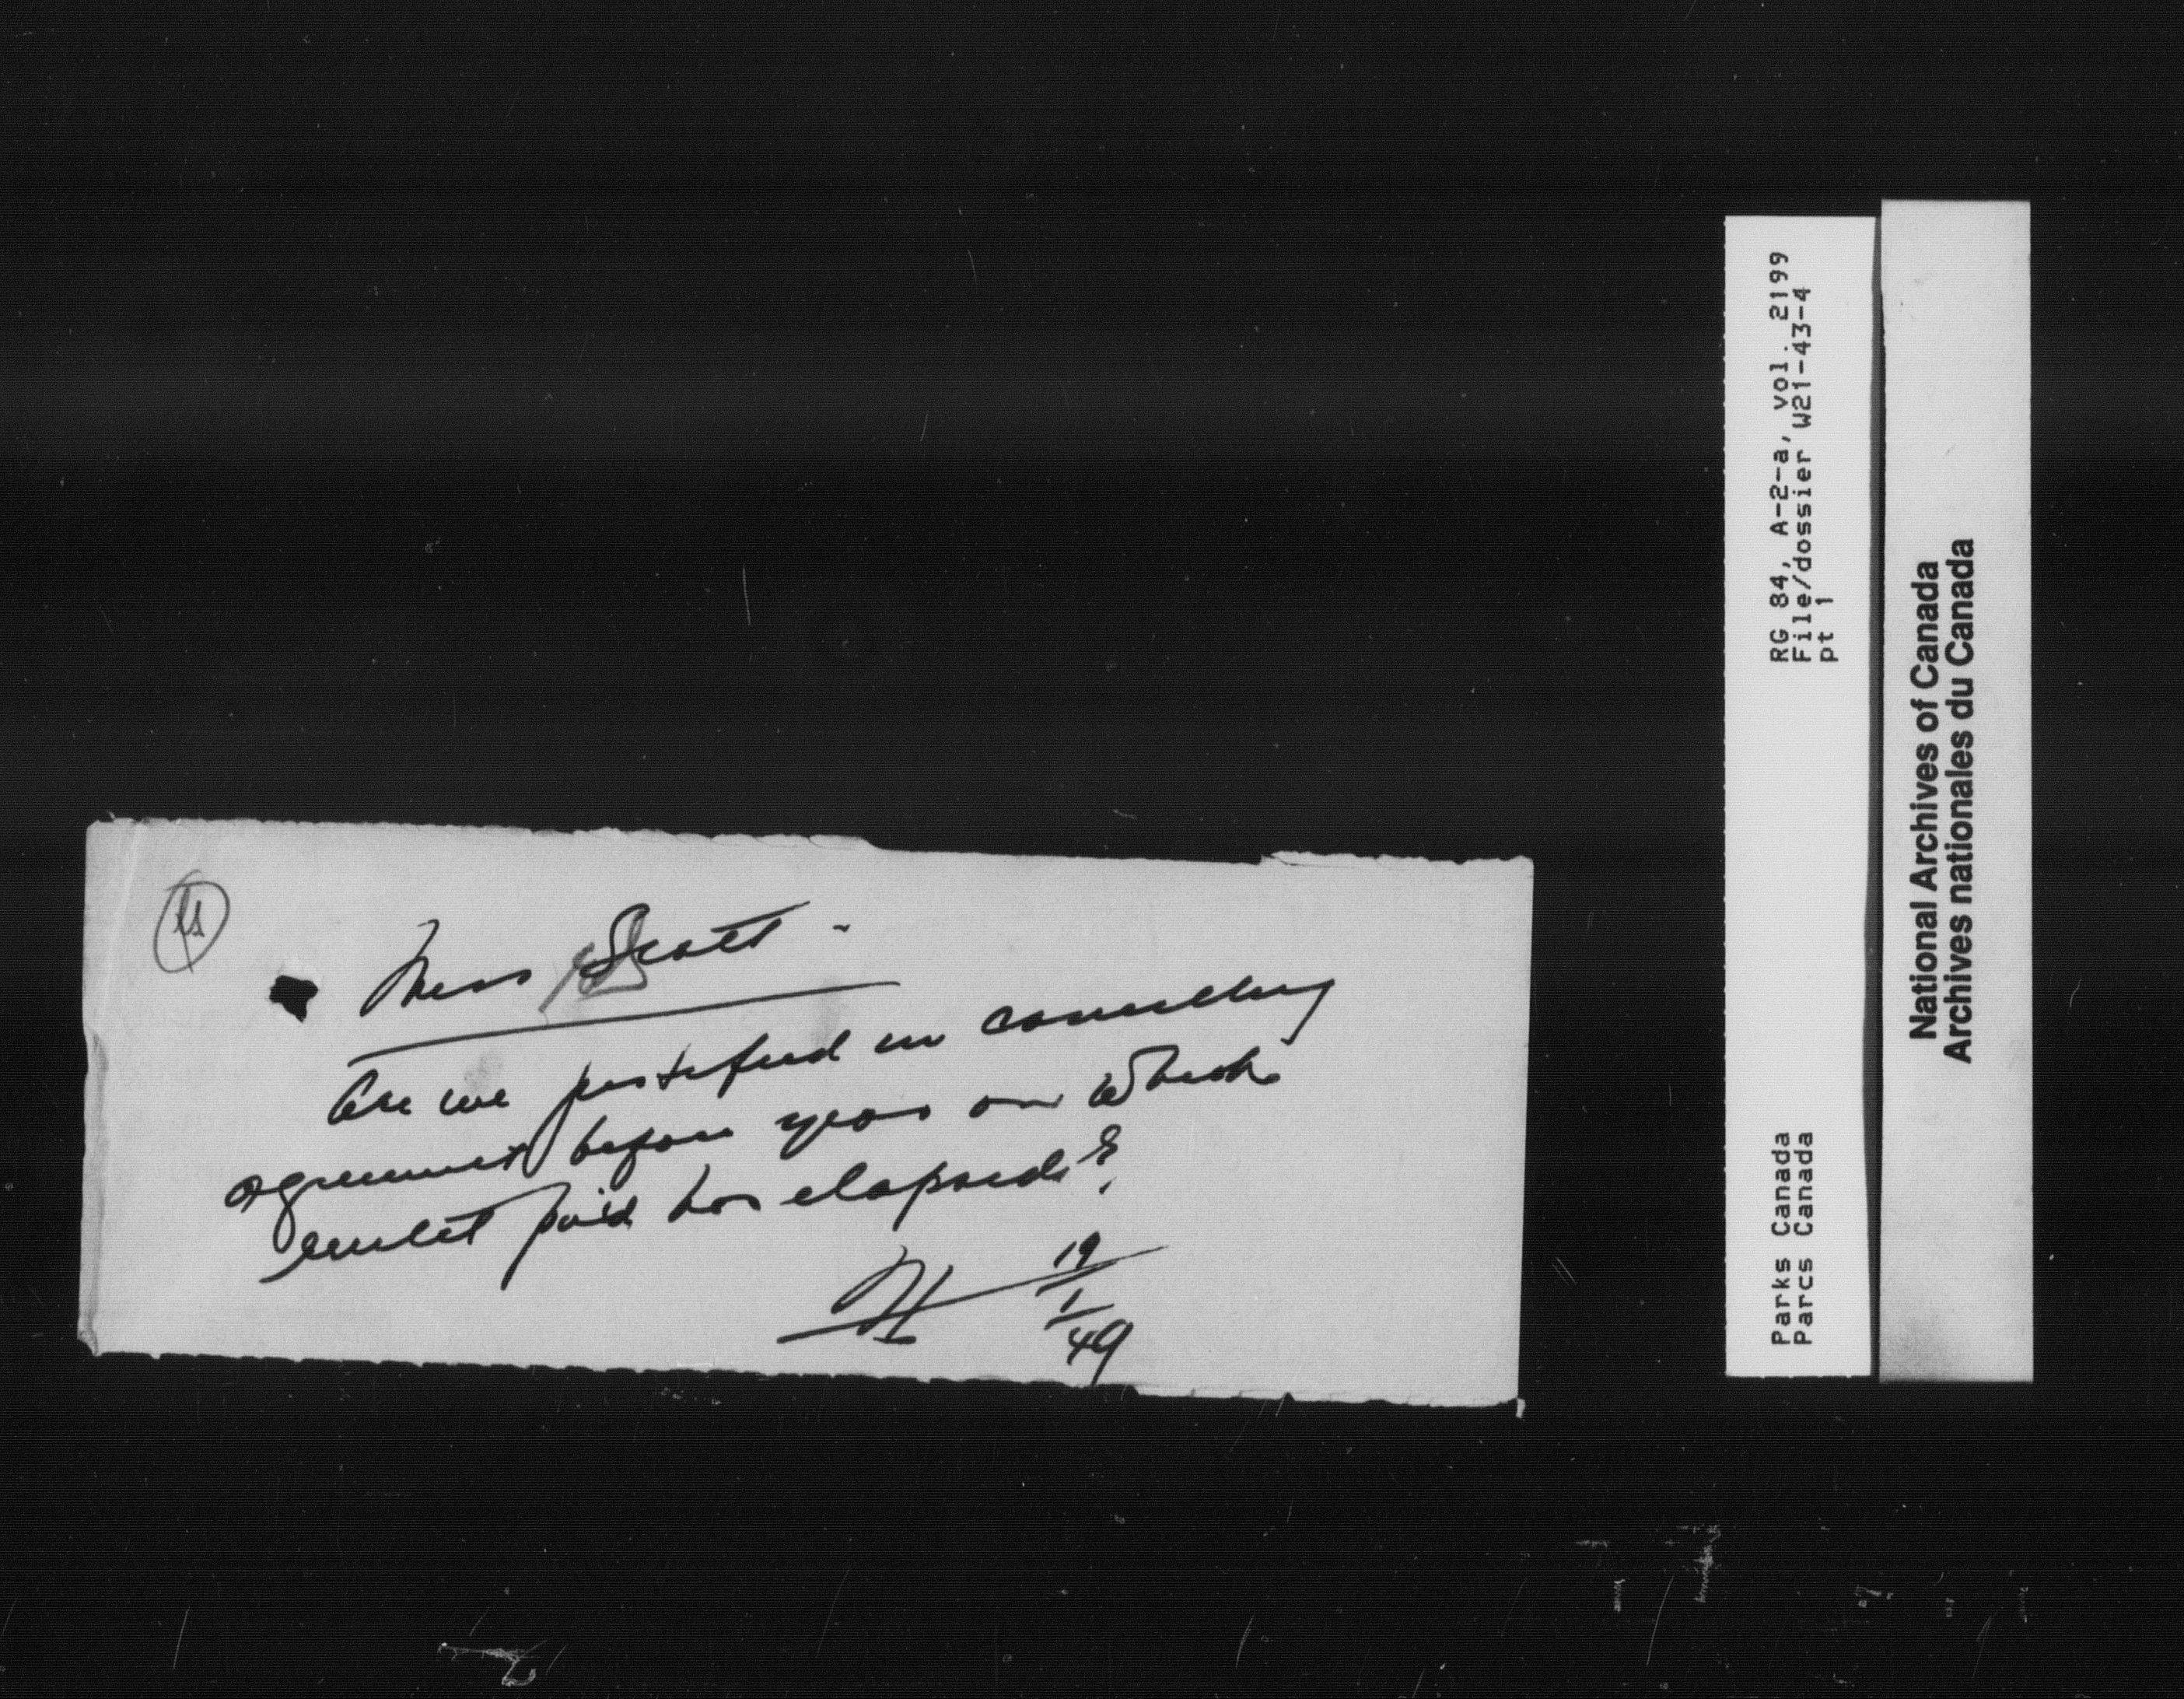 Miss Scott -
Are we justified in cancelling
agreement before year on which
rental paid has elapsed?
19
1
49
RG 84, A-2-a, vol. 2199
File/dossier W21-43-4
pt 1
Parks Canada
Parcs Canada
National Archives of Canada
Archives nationales du Canada